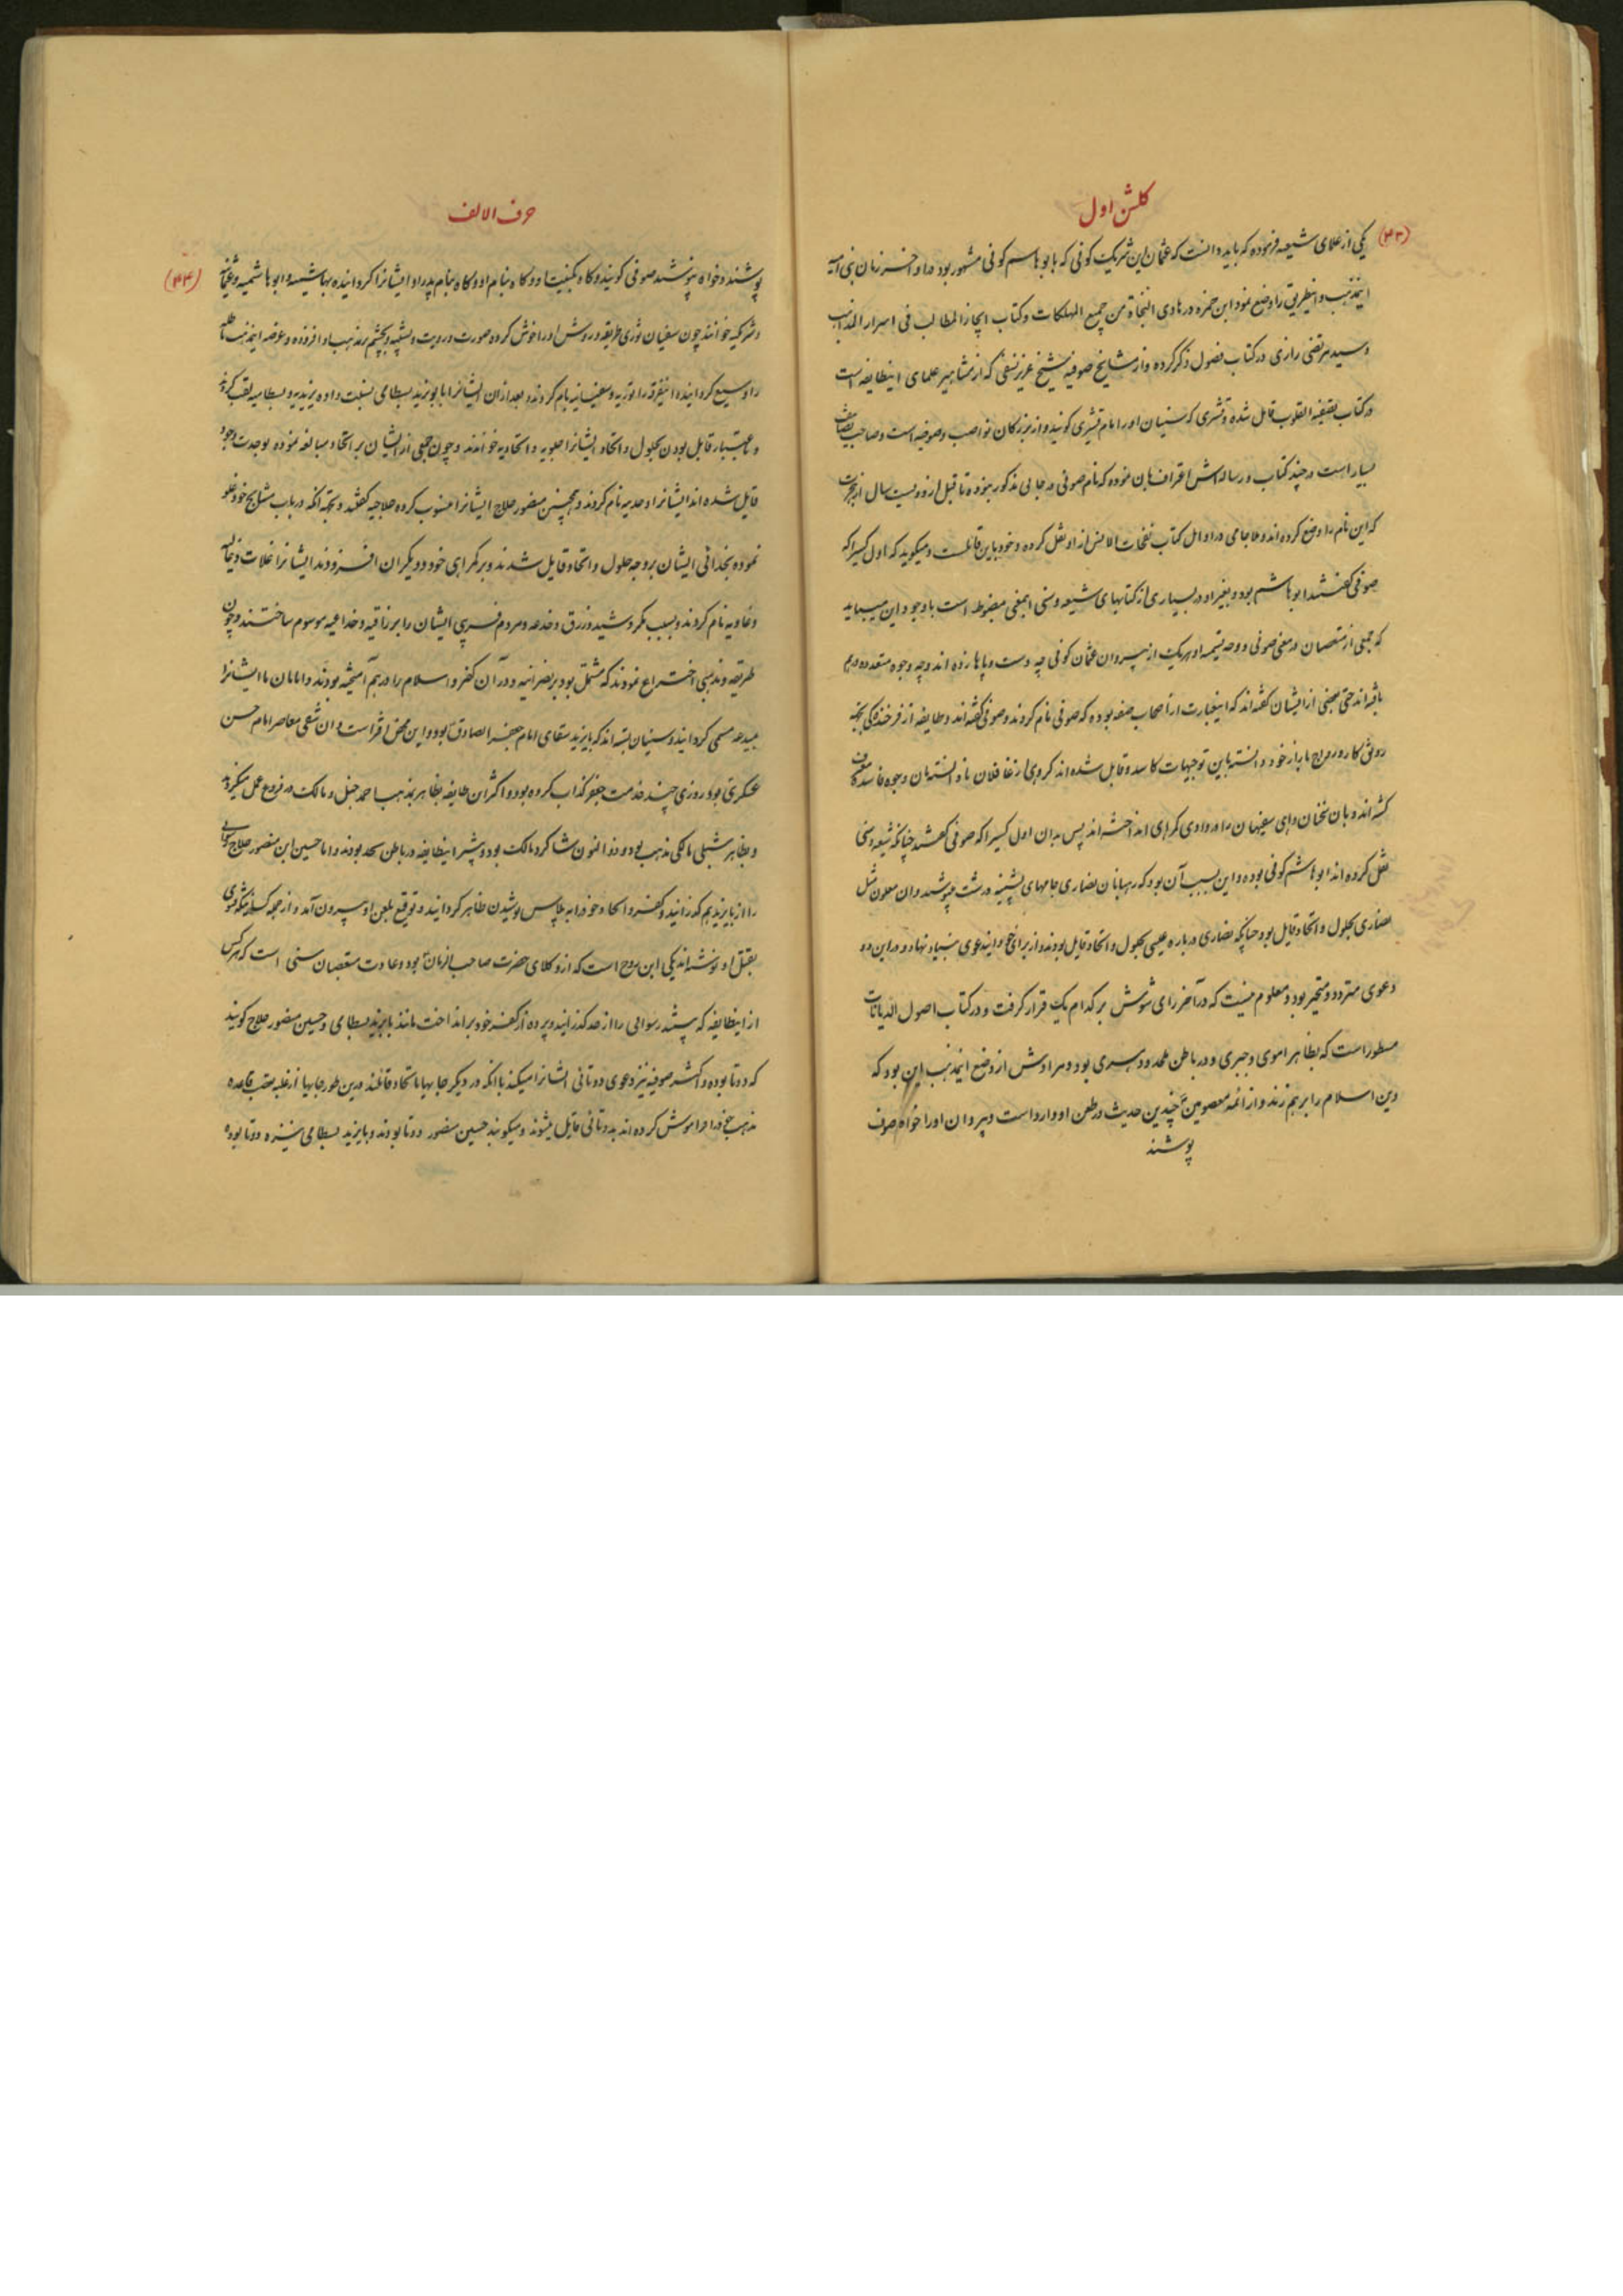 گلشن اول
(۴۳)
یکی از علمای شیعه فرموده که باید دانست که عثمان ابن شریک کوفی که بابو هاشم کوفی مشهور بود در اواخر زمان بنی امیه
اینمذهب و اینطریق را وضع نمود ابن حمزه در هادی النجاة من جمیع المهلکات و کتاب ایجاز المطالب فی اسرار المذاهب
و سید مرتضی رازی در کتاب فصول ذکر کرده و از مشایخ صوفیه شیخ عزیز نسفی که از مشاهیر علمای اینطایفه است
در کتاب تصفیه القلوب قایل شده و قشری که سنیان اورا امام قشیری گویند و از بزرگان نواصب و صوفیه است و صاحب تصانیف
بسیار است در چند کتاب و رساله اش اعتراف بان نموده که نام صوفی در جایی مذکور نبوده تا قبل از دویست سال از هجرت
که این نام را وضع کرده اند و ملا جامی در اوایل کتاب نفحات الانس از او نقل کرده و خود باین قائلست و میگوید که اول کسیرا که
صوفی گفتند ابو هاشم بود و بغیر او در بسیاری از کتابهای شیعه و سنی اینمعنی مضبوطه است باوجود این میباید
که جمعی از متعصبان در معنی صوفی و وجه تسمیه او و هریک از پیروان عثمان کوفی چه دست و پاها زده اند و چه وجوه متعدده درهم
بافته اند حتی بعضی از ایشان گفته اند که اینعبارت از اصحاب صفه بوده که صوفی نام کردند و صوفی گفته اند و طایفه از فرخندگی بجهة
رونق کار و رواج بازار خود دانسته باین توجیهات کاسد و قایل شده اند و گروهی از غافلان نادانسته بان وجوه فاسده معترف
گشته اند و بان سخنان واهی سفیهان را در وادی گمراهی انداخته اند پس بدان اول کسیرا که صوفی گفتند چنانکه شیعه و سنی
نقل کرده اند ابو هاشم کوفی بوده و این بسبب آن بود که رهبانان نصاری جامهای پشینه درشت میپوشید و ان ملعون مثل
نصاری بحلول و اتحاد قایل بود چنانکه نصاری درباره عیسی بحلول و اتحاد قایل بودند و از برای خود ایندعوی بنیاد نهاد و در این دو
دعوی متردد و متحیر بود و معلوم نیست که در آخر رای شومش بر کدام یک قرار گرفت و در کتاب اصول الدیانات
مسطور است که بظاهر اموی و جبری و در باطن ملحد و دهری بود و مرادش از وضع اینمذهب این بود که
دین اسلام را برهم زند و از ائمه معصومین ع چندین حدیث در طعن او وارد است و پیروان اورا خواه صوف
پوشند
حرف الالف
(۴۴)
پوشند و خواه نپوشند صوفی گویند و گاه بکنیت او و گاه بنام او و گاه بنام پدر او ایشانرا گردانیده بهاشمیه و ابو هاشمیه و عثمانیه
و شریکیه خوانند چون سفیان ثوری طریقه و روش اورا خوش کرده صورت و رویت و تشبیه و تجسم بر مذهب او افزوده و عرصه اینمذهب
را وسیع گردانیده اینفرقه را ثوریه و سفیانیه نام کردند و بعد از آن ایشانرا بابو یزید بسطامی نسبت داده یزیدیه و بسطامیه لقب کردند
و باعتبار قایل بودن بحلول و اتحاد ایشانرا حلولیه و اتحادیه خواندند و چون جمعی از ایشان بر اتحاد مبالغه نموده بوحدت وجود
قایل شده اند ایشانرا وحدیه نام کردند و بحسین منصور حلاج ایشانرا منسوب کرده حلاجیه گفتند و بجهة آنکه در باب مشایخ خود غلو
نموده بخدائی ایشان بر وجه حلول و اتحاد قایل شدند و بر گمراهی خود و دیگران افزودند ایشانرا غلات و غالیه
و غاویه نام کردند و بسبب مکر و شید و زرق و خدعه و مردم فریبی ایشان را بزراقیه و خداعیه موسوم ساختند و چون
طریقه و مذهبی اختراع نمودند که مشتمل بود بر نصرانیه و در آن کفر و اسلام را در هم آمیخته بودند و امامان ما ایشانرا
مبدعه مسمی گردانیدند و سنیان بسته اند که بایزید سقای امام جعفر الصادق ع بود و این محض افتراست و ان شقی معاصر امام حسن
عسکری بود و روزی چند خدمت جعفر کذاب کرده بود و اکثر ان طایفه بظاهر بمذهب احمد حنبل و مالک در فروع عمل میکردند
و بظاهر شبلی مالکی مذهب بود و ذا النون شاگرد مالک بود و بیشتر اینطایفه در باطن ملحد بودند و اما حسین ابن منصور حلاج رسوایی
را از بایزید هم گذرانید و کفر و الحاد خود را به پلاس پوشیدن ظاهر گردانید و توقیع بلعن او بیرون آمد و از جمله کسانیکه فتوی
بقتل او نوشته اند یکی ابن روح است که از وکلای حضرت صاحب الزمان ع بود و عادت متعصبان سنی است که هرکس
از اینطایفه که بیشتر رسوایی را از حد گذرانید و پرده از کفر خود بر انداخت مانند بایزید بسطامی و حسین منصور حلاج گویند
که دو تا بوده و اکثر صوفیه نیز دعوی دوتائی ایشانرا میکنند با انکه در دیگر جایها باتحاد قائلند در این طور جایها از غلبه تعصب قاعده
مذهب خود را فراموش کرده اند بدوتائی قایل میشوند و میگویند حسین منصور دو تا بودند و بایزید بسطامی نیز دو تا بوده